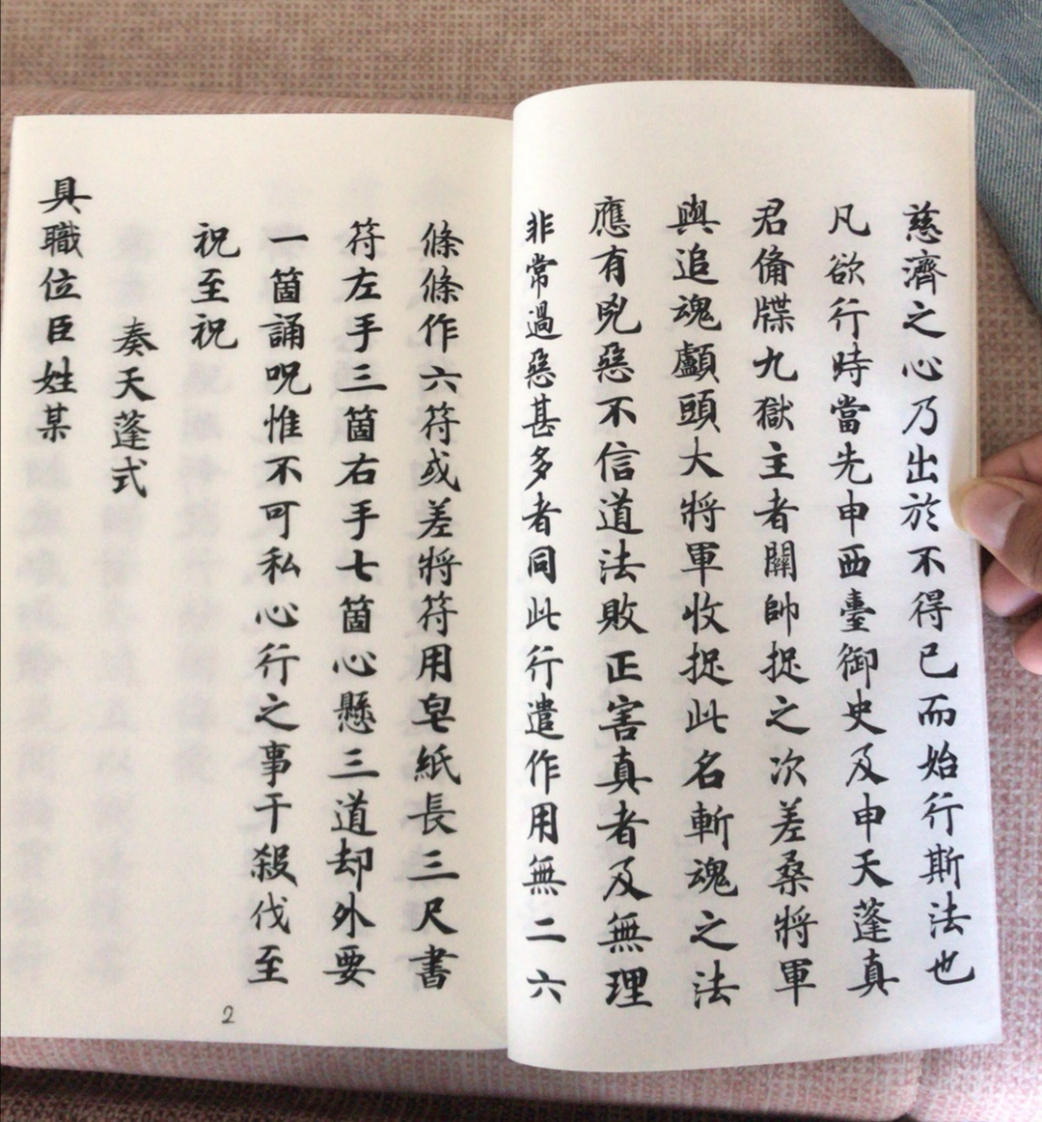 慈濟之心乃出於不得已而始行斯法也
凡欲行時當先申西臺御史及申天蓬真
君俻牒九獄主者關帥捉之次差桑將軍
與追魂顱頭大將軍收捉此名斬魂之法
應有兇惡不信道法敗正害真者及無理
非常過惡甚多者同此行遣作用無二六
條條作六符或差將符用皂紙長三尺書
符左手三箇右手七箇心懸三道却外要
一箇誦呪惟不可私心行之事干殺伐至
祝至祝
奏天蓬式
具職位臣姓某
2